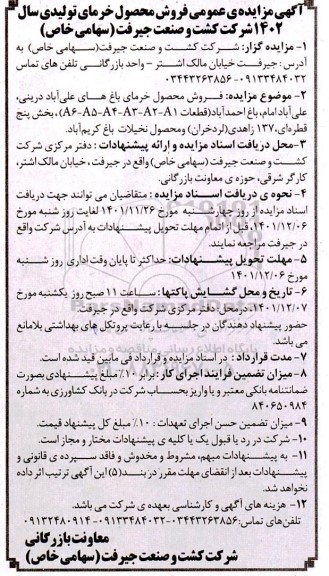 آگهی مزایده‌ی عمومی فروش محصول خرمای تولیدی سال
۱۴۰۲ شرکت کشت و صنعت جیرفت (سهامی خاص)
۱- مزایده گزار: شرکت کشت و صنعت جیرفت(سهامی خاص) به
آدرس : جیرفت خیابان مالک اشتر - واحد بازرگانی تلفن های تماس
۰۹۱۳۳۴۸۴۰۳۲ - ۰۳۴۴۳۲۶۳۸۵۶
۲- موضوع مزایده: فروش محصول خرمای باغ های علی‌آباد درینی،
علی‌آباد امام، باغ احمدآباد(قطعات A6-A5-A4-A3-A2-A1)، بخش پنج
قطره‌ای، ۱۳۷ زاهدی(لردخران) ومحصول نخیلات باغ کریم‌آباد.
۳-محل دریافت اسناد مزایده و ارائه پیشنهادات : دفتر مرکزی شرکت
کشت و صنعت جیرفت (سهامی خاص) واقع در جیرفت ، خیابان مالک اشتر،
کارگر شرقی، حوزه ی معاونت بازرگانی.
۴- نحوه ی دریافت اسناد مزایده : متقاضیان می توانند جهت دریافت
اسناد مزایده از روز چهارشنبه مورخ ۱۴۰۱/۱۱/۲۶ لغایت روز شنبه مورخ
۱۴۰۱/۱۲/۰۶ ، قبل از اتمام مهلت تحویل پیشنهادات به آدرس شرکت واقع
در جیرفت مراجعه نمایند.
۵- مهلت تحویل پیشنهادات: حداکثر تا پایان وقت اداری روز شنبه
مورخ ۱۴۰۱/۱۲/۰۶
۶- تاریخ و محل گشایش پاکتها : ساعت ۱۱ صبح روز یکشنبه مورخ
۱۴۰۱/۱۲/۰۷، درمحل: دفتر مرکزی شرکت واقع در جیرفت
حضور پیشنهاد دهندگان در جلسه با رعایت پروتکل های بهداشتی بلامانع
می باشد.
۷- مدت قرارداد : در اسناد مزایده و قرارداد فی مابین قید شده است.
۸- میزان تضمین فرآیند اجرای کار: برابر ۱۰٪ مبلغ پیشنهادی بصورت
ضمانتنامه بانکی معتبر و یا واریز بحساب شرکت در بانک کشاورزی به شماره
۸۴۰۶۵۰۹۸۴
۹- میزان تضمین حسن اجرای تعهدات : ۱۰٪ مبلغ کل پیشنهاد قیمت.
۱۰- شرکت در رد یا قبول یک یا کلیه ی پیشنهادات مختار و مجاز است.
۱۱- به پیشنهادات مبهم، مشروط و مخدوش و فاقد سپرده ی قانونی و
پیشنهادات بعد از انقضای مهلت مقرر در بند(۵) این آگهی ترتیب اثر داده
نخواهد شد.
۱۲- هزینه های آگهی و کارشناسی بعهده ی شرکت می باشد.
تلفن‌های تماس: ۰۳۴۴۳۲۶۳۸۵۶-۰۹۱۳۳۴۸۴۰۳۲-۰۹۱۳۲۴۸۰۹۱۴
معاونت بازرگانی
شرکت کشت و صنعت جیرفت (سهامی خاص)